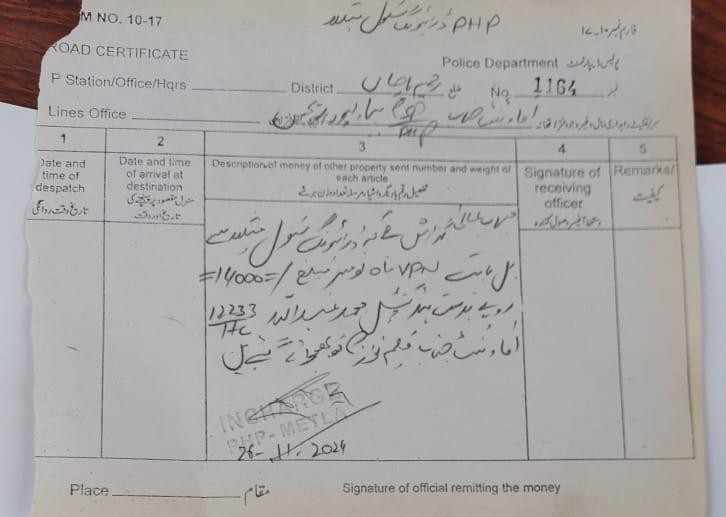 M NO. 10-17
PHP ڈرائیونگ سکول متیلہ
فارم نمبر ۱۰۔۱۷
ROAD CERTIFICATE
Police Department
P Station/Office/Hqrs
District رحیم یار خان ضلع
No 1164 نمبر
Lines Office
PHP
1 2 3 4 5
Date and time of despatch
تاریخ وقت روانگی
Date and time of arrival at destination
Description of money of other property sent number and weight of each article
Signature of receiving officer
Remarks/
کیفیت
گزارش ہے کہ ڈرائیونگ سکول متیلہ سے
بل بابت VPN ماہ نومبر مبلغ /=14000=
روپے بدست ہیڈ کنسٹیبل محمد عبداللہ 12233/HC
INCHARGE
PHP-METLA
26-11.2024
Place مقام
Signature of official remitting the money